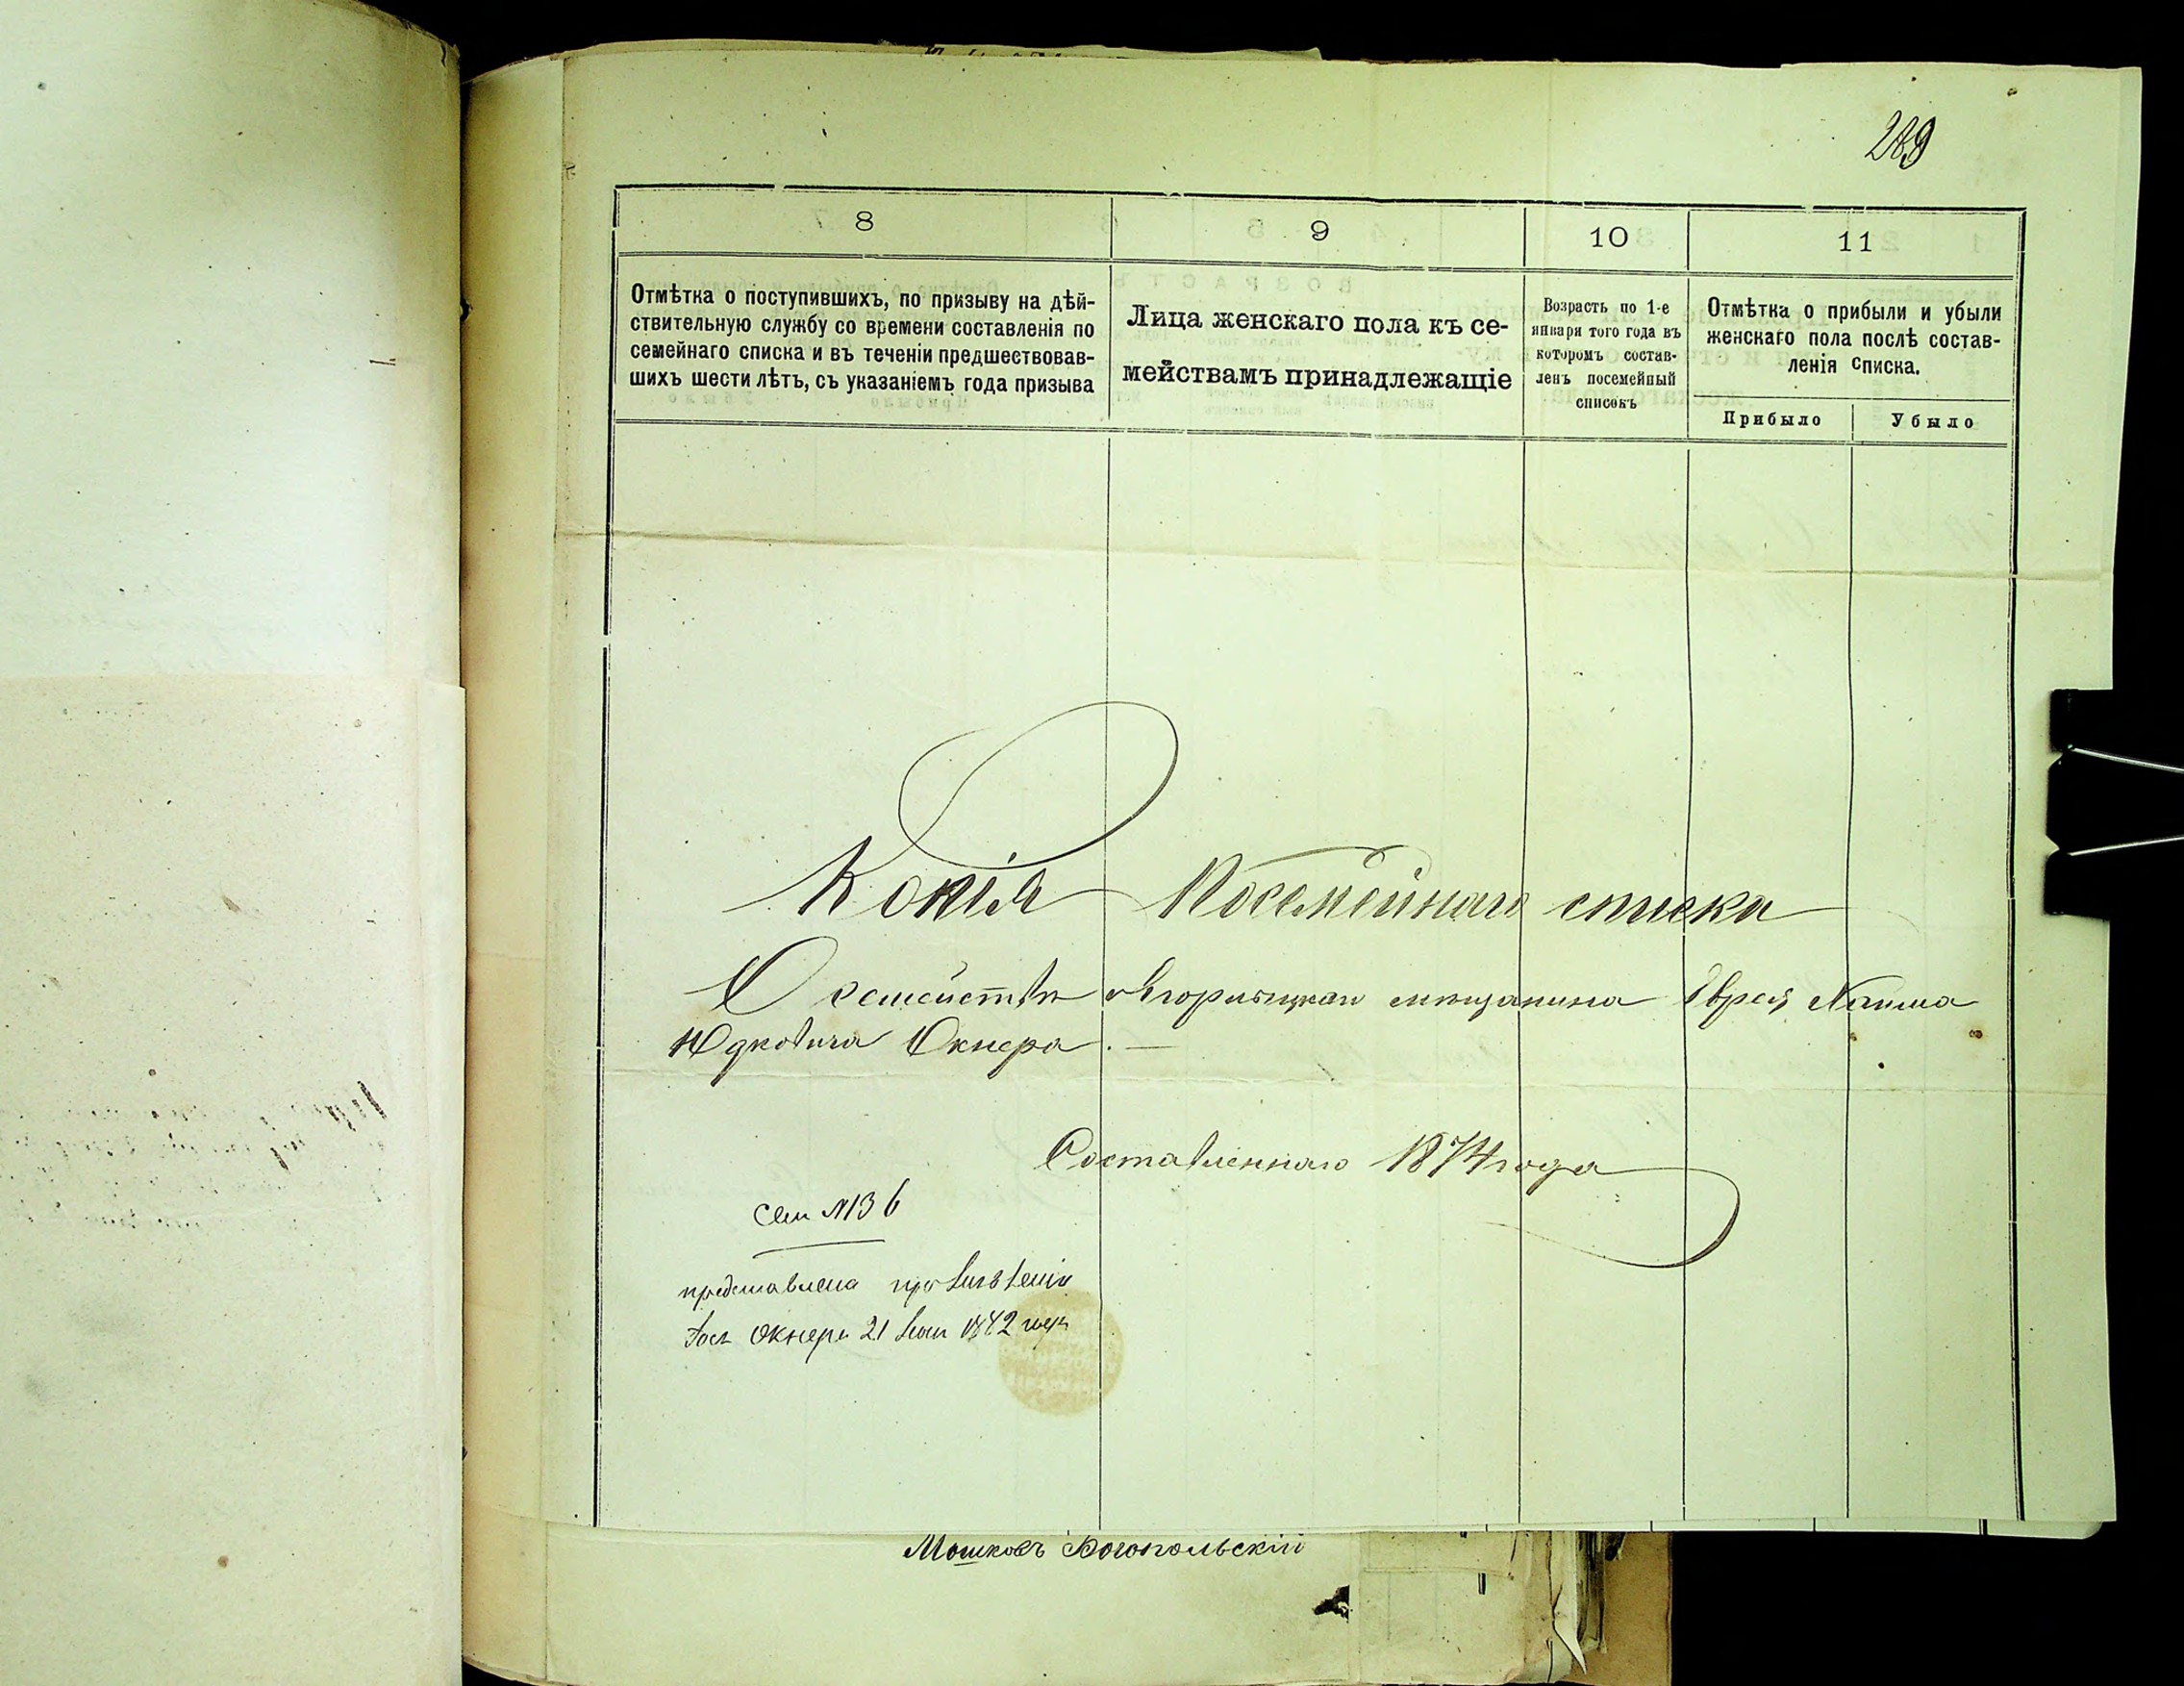 289
8
9
10
11
Отмѣтка о поступившихъ, по призыву на дѣй-
ствительную службу со времени составленія по
семейнаго списка и въ теченіи предшествовав-
шихъ шести лѣтъ, съ указаніемъ года призыва
Лица женскаго пола къ се-
мействамъ принадлежащіе
Возрасть по 1-е
января того года въ
которомъ состав-
ленъ посемейный
списокъ
Отмѣтка о прибыли и убыли
женскаго пола послѣ состав-
ленія Списка.
Прибыло
Убыло
Копія Посемейнаго списка
О семействѣ мѣщанина Еврея Хаима
Юдковича Окнера. —
Составленнаго 1874 года
Сем №136
представлена
Окнера 21
Мошковъ Богопольскій